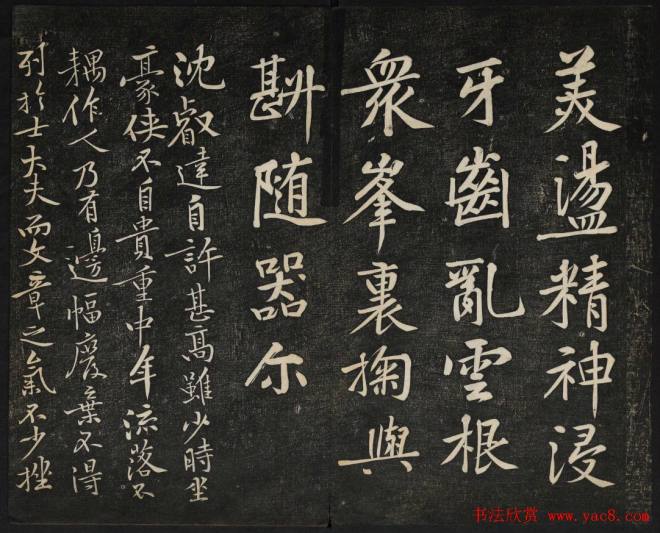 美盪精神浸
牙齒亂雲根
衆峯裏掬與
斟随器尔
沈叡達自許甚高雖少時坐
豪侠不自貴重中年流落不
耦作人乃有邊幅廢棄不得
列於士大夫而文章之氣不少挫
书法欣赏 www.yac8.com